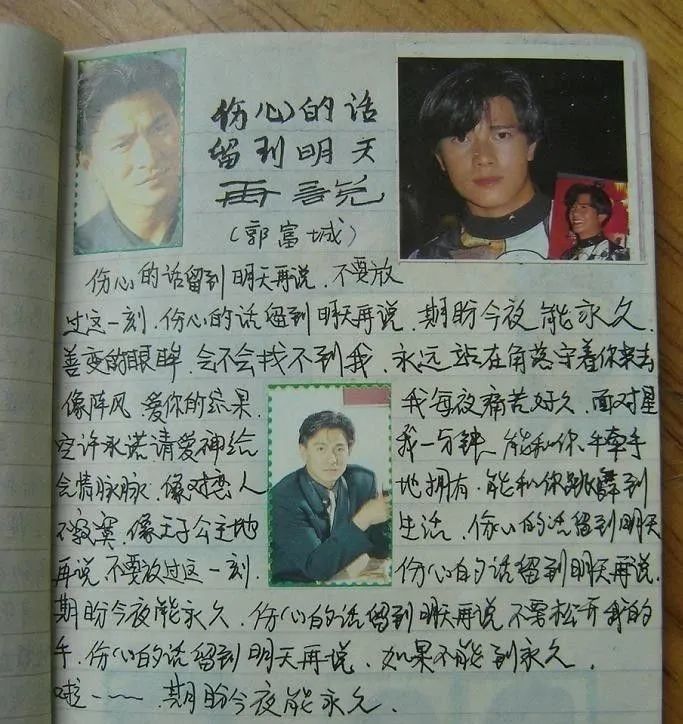 伤心的话
留到明天
再説
(郭富城)
伤心的话留到明天再说.不要放
过这一刻.伤心的话留到明天再说.期盼今夜能永久.
善变的眼眸.会不会找不到我.永远站在角落守着你来去
像阵风.爱你的结果.我每夜痛苦好久.面对星
空许承诺请爱神给我一分钟.能和你手牵手
含情脉脉.像对恋人地拥有.能和你跳舞到
不寂寞.像王子公主地生活.伤心的话留到明天
再说.不要放过这一刻.伤心的话留到明天再说.
期盼今夜能永久.伤心的话留到明天再说不要松开我的
手.伤心的话留到明天再说.如果不能到永久.
啦~~~.期盼今夜能永久.